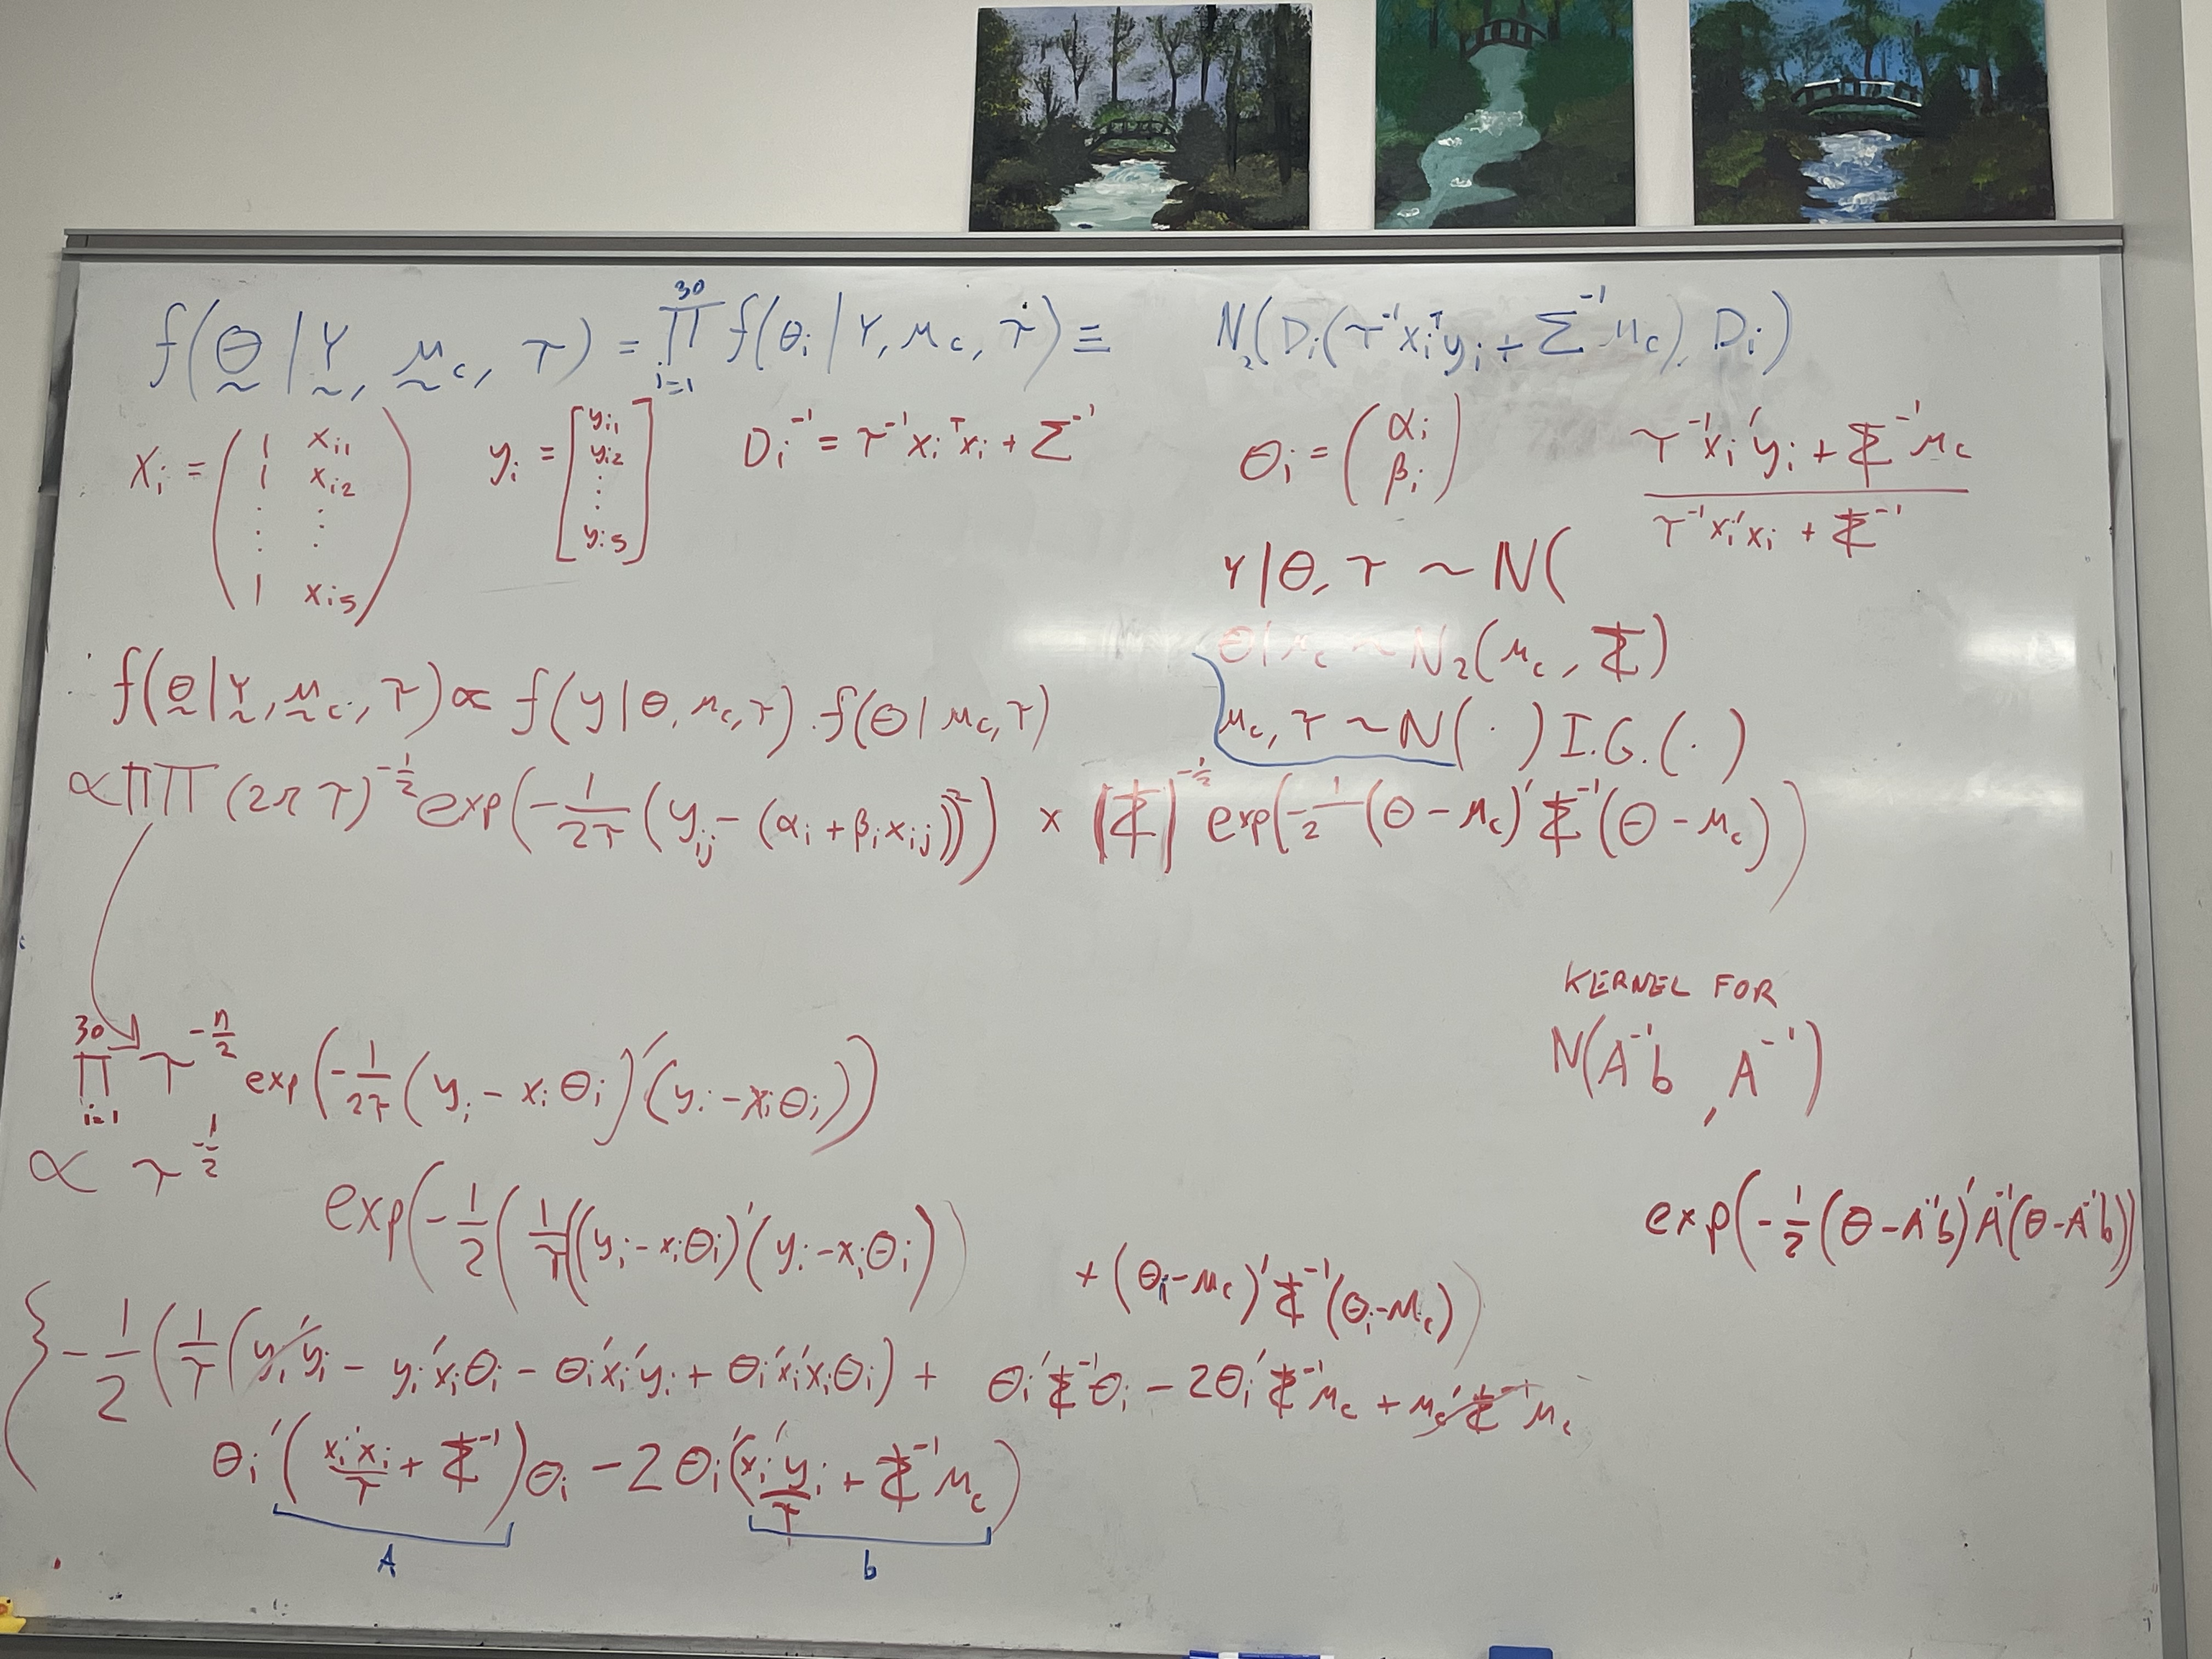 f(θ | Y, μ_c, τ) = ∏_{i=1}^{30} f(θ_i | Y, μ_c, τ) ≡ N_2(D_i(τ^{-1} x_i^T y_i + Σ^{-1} μ_c), D_i)
X_i = ( 1 x_{i1} 1 x_{i2} ⋮ ⋮ 1 x_{i5} ) y_i = [ y_{i1} y_{i2} ⋮ y_{i5} ] D_i^{-1} = τ^{-1} x_i^T x_i + Σ^{-1} θ_i = ( α_i β_i )
τ^{-1} x_i' y_i + Σ^{-1} μ_c
τ^{-1} x_i' x_i + Σ^{-1}
Y | θ, τ ~ N(
θ | μ_c ~ N_2(μ_c, Σ)
μ_c, τ ~ N(·) I.G.(·)
f(θ | Y, μ_c, τ) ∝ f(y | θ, μ_c, τ) · f(θ | μ_c, τ)
∝ ∏∏ (2π τ)^{-1/2} exp(-1/2τ (y_{ij} - (α_i + β_i x_{ij}))^2) × |Σ|^{-1/2} exp(-1/2 (θ - μ_c)' Σ^{-1} (θ - μ_c))
KERNEL FOR
N(A^{-1}b, A^{-1})
∏_{i=1}^{30} τ^{-n/2} exp(-1/2τ (y_i - x_i θ_i)' (y_i - x_i θ_i))
∝ τ^{-1/2}
exp(-1/2 (1/τ ((y_i - x_i θ_i)' (y_i - x_i θ_i)) + (θ_i - μ_c)' Σ^{-1} (θ_i - μ_c))
exp(-1/2 (θ - A^{-1}b)' A^{-1} (θ - A^{-1}b))
{ -1/2 (1/τ (y_i' y_i - y_i' x_i θ_i - θ_i' x_i' y_i + θ_i' x_i' x_i θ_i) + θ_i' Σ^{-1} θ_i - 2θ_i' Σ^{-1} μ_c + μ_c' Σ^{-1} μ_c
θ_i' (x_i' x_i / τ + Σ^{-1}) θ_i - 2 θ_i' (x_i' y_i / τ + Σ^{-1} μ_c)
A b